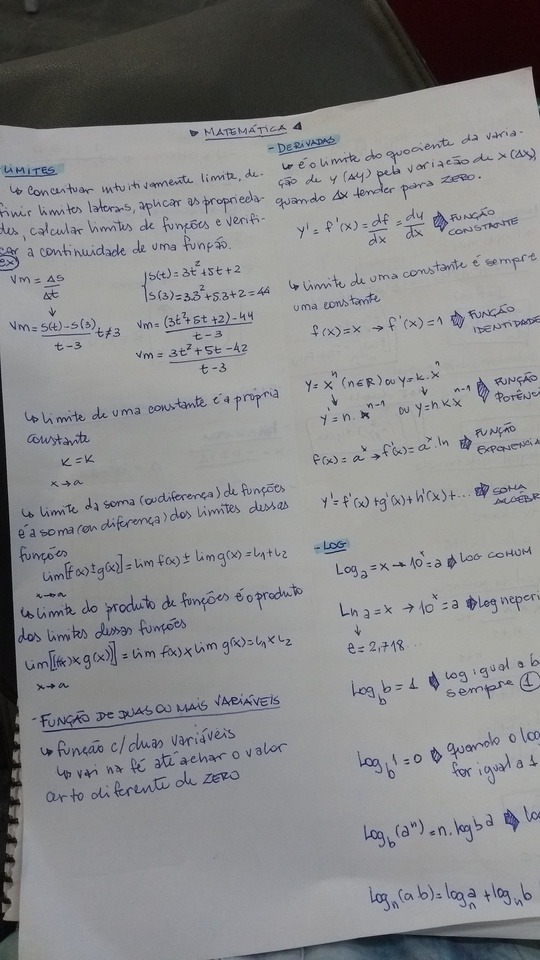 MATEMÁTICA
LIMITES
↳ conceituar intuitivamente limite, de-
finir limites laterais, aplicar as proprieda-
des, calcular limites de funções e verifi-
car a continuidade de uma função.
ex
Vm = Δs/Δt
↓
Vm = s(t)-s(3)/t-3 t≠3
{s(t) = 3t²+5t+2
s(3) = 3.3²+5.3+2 = 44
Vm = (3t²+5t+2)-44/t-3
Vm = 3t²+5t-42/t-3
↳ limite de uma constante é a própria
constante
K = K
x→a
↳ limite da soma (ou diferença) de funções
é a soma (ou diferença) dos limites dessas
funções
Lim[f(x)±g(x)] = Lim f(x) ± Lim g(x) = L1+L2
x→a
↳ limite do produto de funções é o produto
dos limites dessas funções
Lim[f(x)×g(x)] = Lim f(x) × Lim g(x) = L1×L2
x→a
- FUNÇÃO DE DUAS OU MAIS VARIÁVEIS
↳ função c/ duas variáveis
↳ vai na fé até achar o valor
certo diferente de ZERO
- DERIVADAS
↳ é o limite do quociente da varia-
ção de y (Δy) pela variação de x (Δx),
quando Δx tender para ZERO.
y' = f'(x) = df/dx = dy/dx ⇒ FUNÇÃO
CONSTANTE
↳ limite de uma constante é sempre
uma constante
f(x) = x → f'(x) = 1 ⇒ FUNÇÃO
IDENTIDADE
y = xⁿ (n∈R) ou y = k.xⁿ
↓ ↓
y' = n.xⁿ⁻¹ ou y = n.Kxⁿ⁻¹ ⇒ FUNÇÃO
POTÊNC
f(x) = aˣ → f'(x) = aˣ.ln ⇒ FUNÇÃO
EXPONENCIA
y' = f'(x)+g'(x)+h'(x)+... ⇒ SOMA
ALGÉB
- LOG
Log a = x → 10ˣ = a ⇒ LOG COMUM
Ln a = x → 10ˣ = a ⇒ log neperi
↓
e = 2,718...
Log_b b = 1 ⇒ log igual a b
sempre 1
Log_b 1 = 0 ⇒ quando o log
for igual a 1
Log_b (aⁿ) = n.log b a ⇒ lo
Log_n (a.b) = log_n a + log_n b